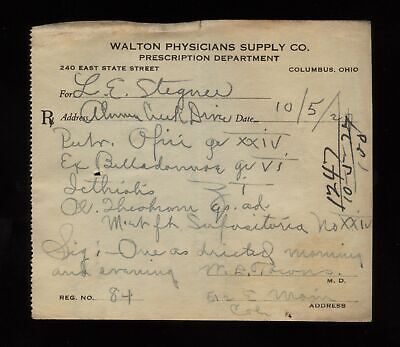 WALTON PHYSICIANS SUPPLY CO.
PRESCRIPTION DEPARTMENT
240 EAST STATE STREET COLUMBUS, OHIO
For L. E. Stegner
R Address Alumn Creek Drive Date 10/5/
Pulv. Opii gr XXIV
Ex Belladonnae gr VI
Icthiolis I
Ol. Theobrom qs. ad
M et ft Suppositoria No XXIV
Sig: - One as directed morning
and evening M. B. Towns M. D.
REG. NO. 84 E Main
ADDRESS
Col.
1247
10-5-